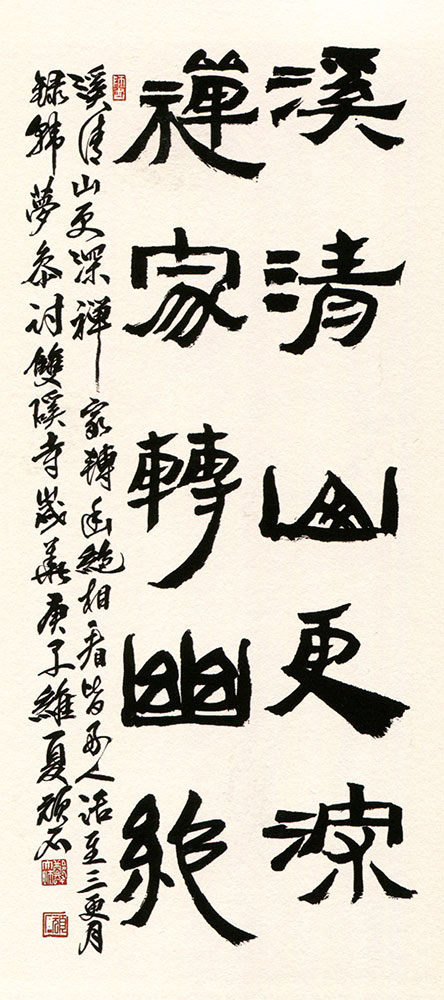 溪清山更深
禪家轉幽絕
溪清山更深禪家轉幽絕相看皆人話至三更月
錄韓夢參詩雙磎寺歲庚子維夏頑石